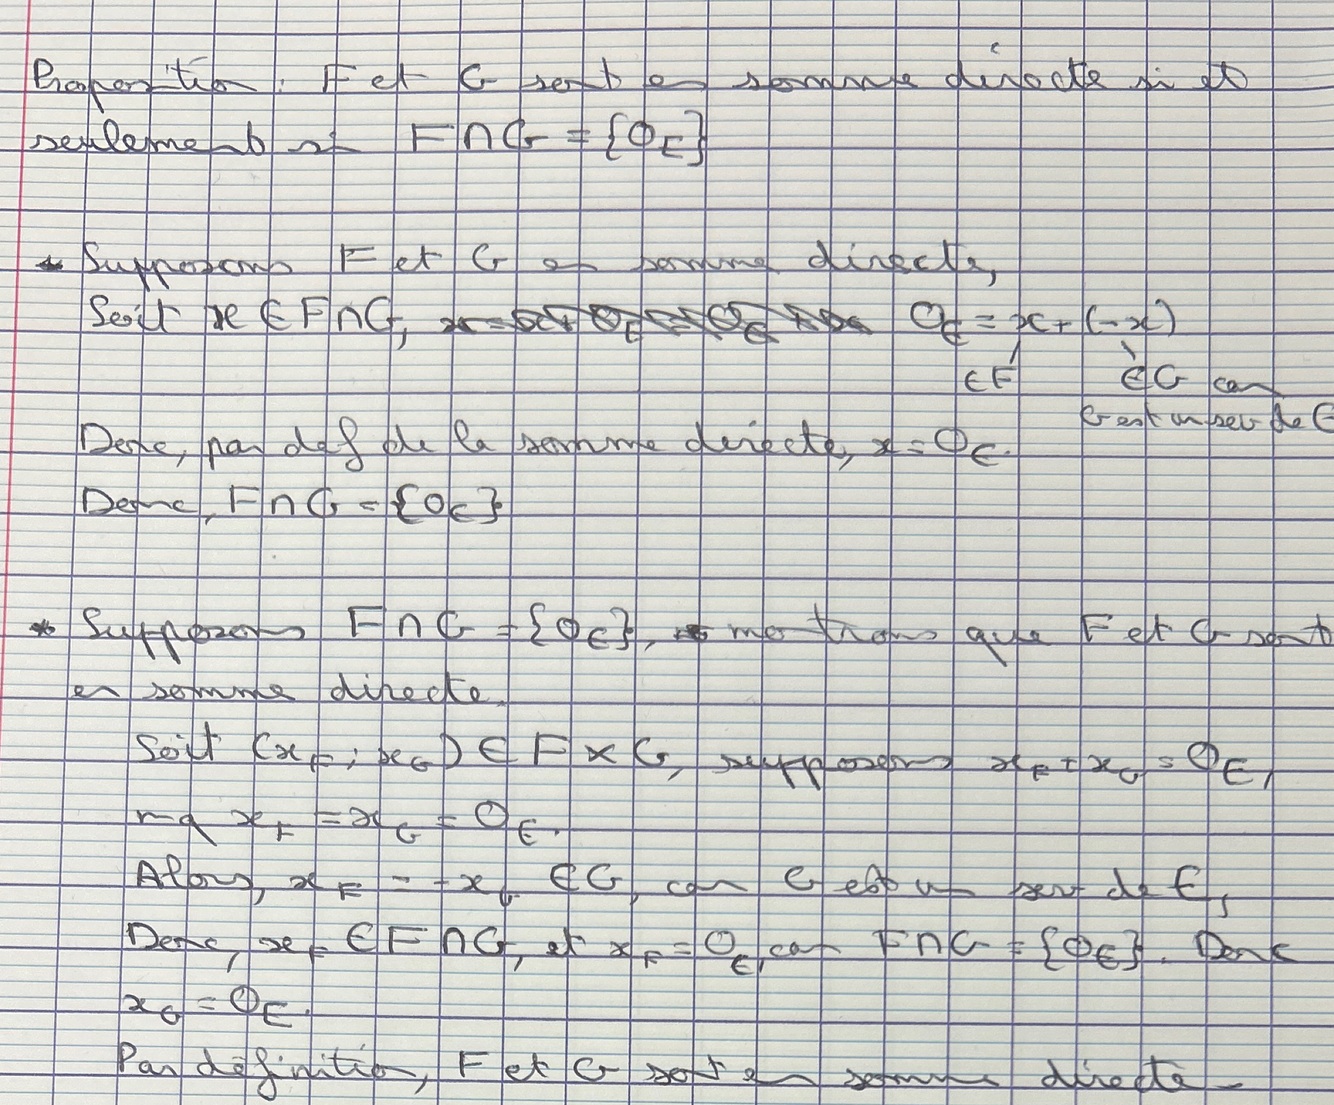 Proposition : F et G sont en somme directe si et
seulement si F ∩ G = {0_E}
* Supposons F et G en somme directe,
Soit x ∈ F ∩ G, 0_E = x + (-x)
∈ F ∈ G car
G est un sev de E
Donc, par def de la somme directe, x = 0_E.
Donc, F ∩ G = {0_E}
* Supposons F ∩ G = {0_E}, montrons que F et G sont
en somme directe.
Soit (x_F ; x_G) ∈ F × G, supposons x_F + x_G = 0_E,
mq x_F = x_G = 0_E.
Alors, x_F = -x_G ∈ G, car G est un sev de E,
Donc, x_F ∈ F ∩ G, et x_F = 0_E, car F ∩ G = {0_E}. Donc
x_G = 0_E.
Par définition, F et G sont en somme directe.